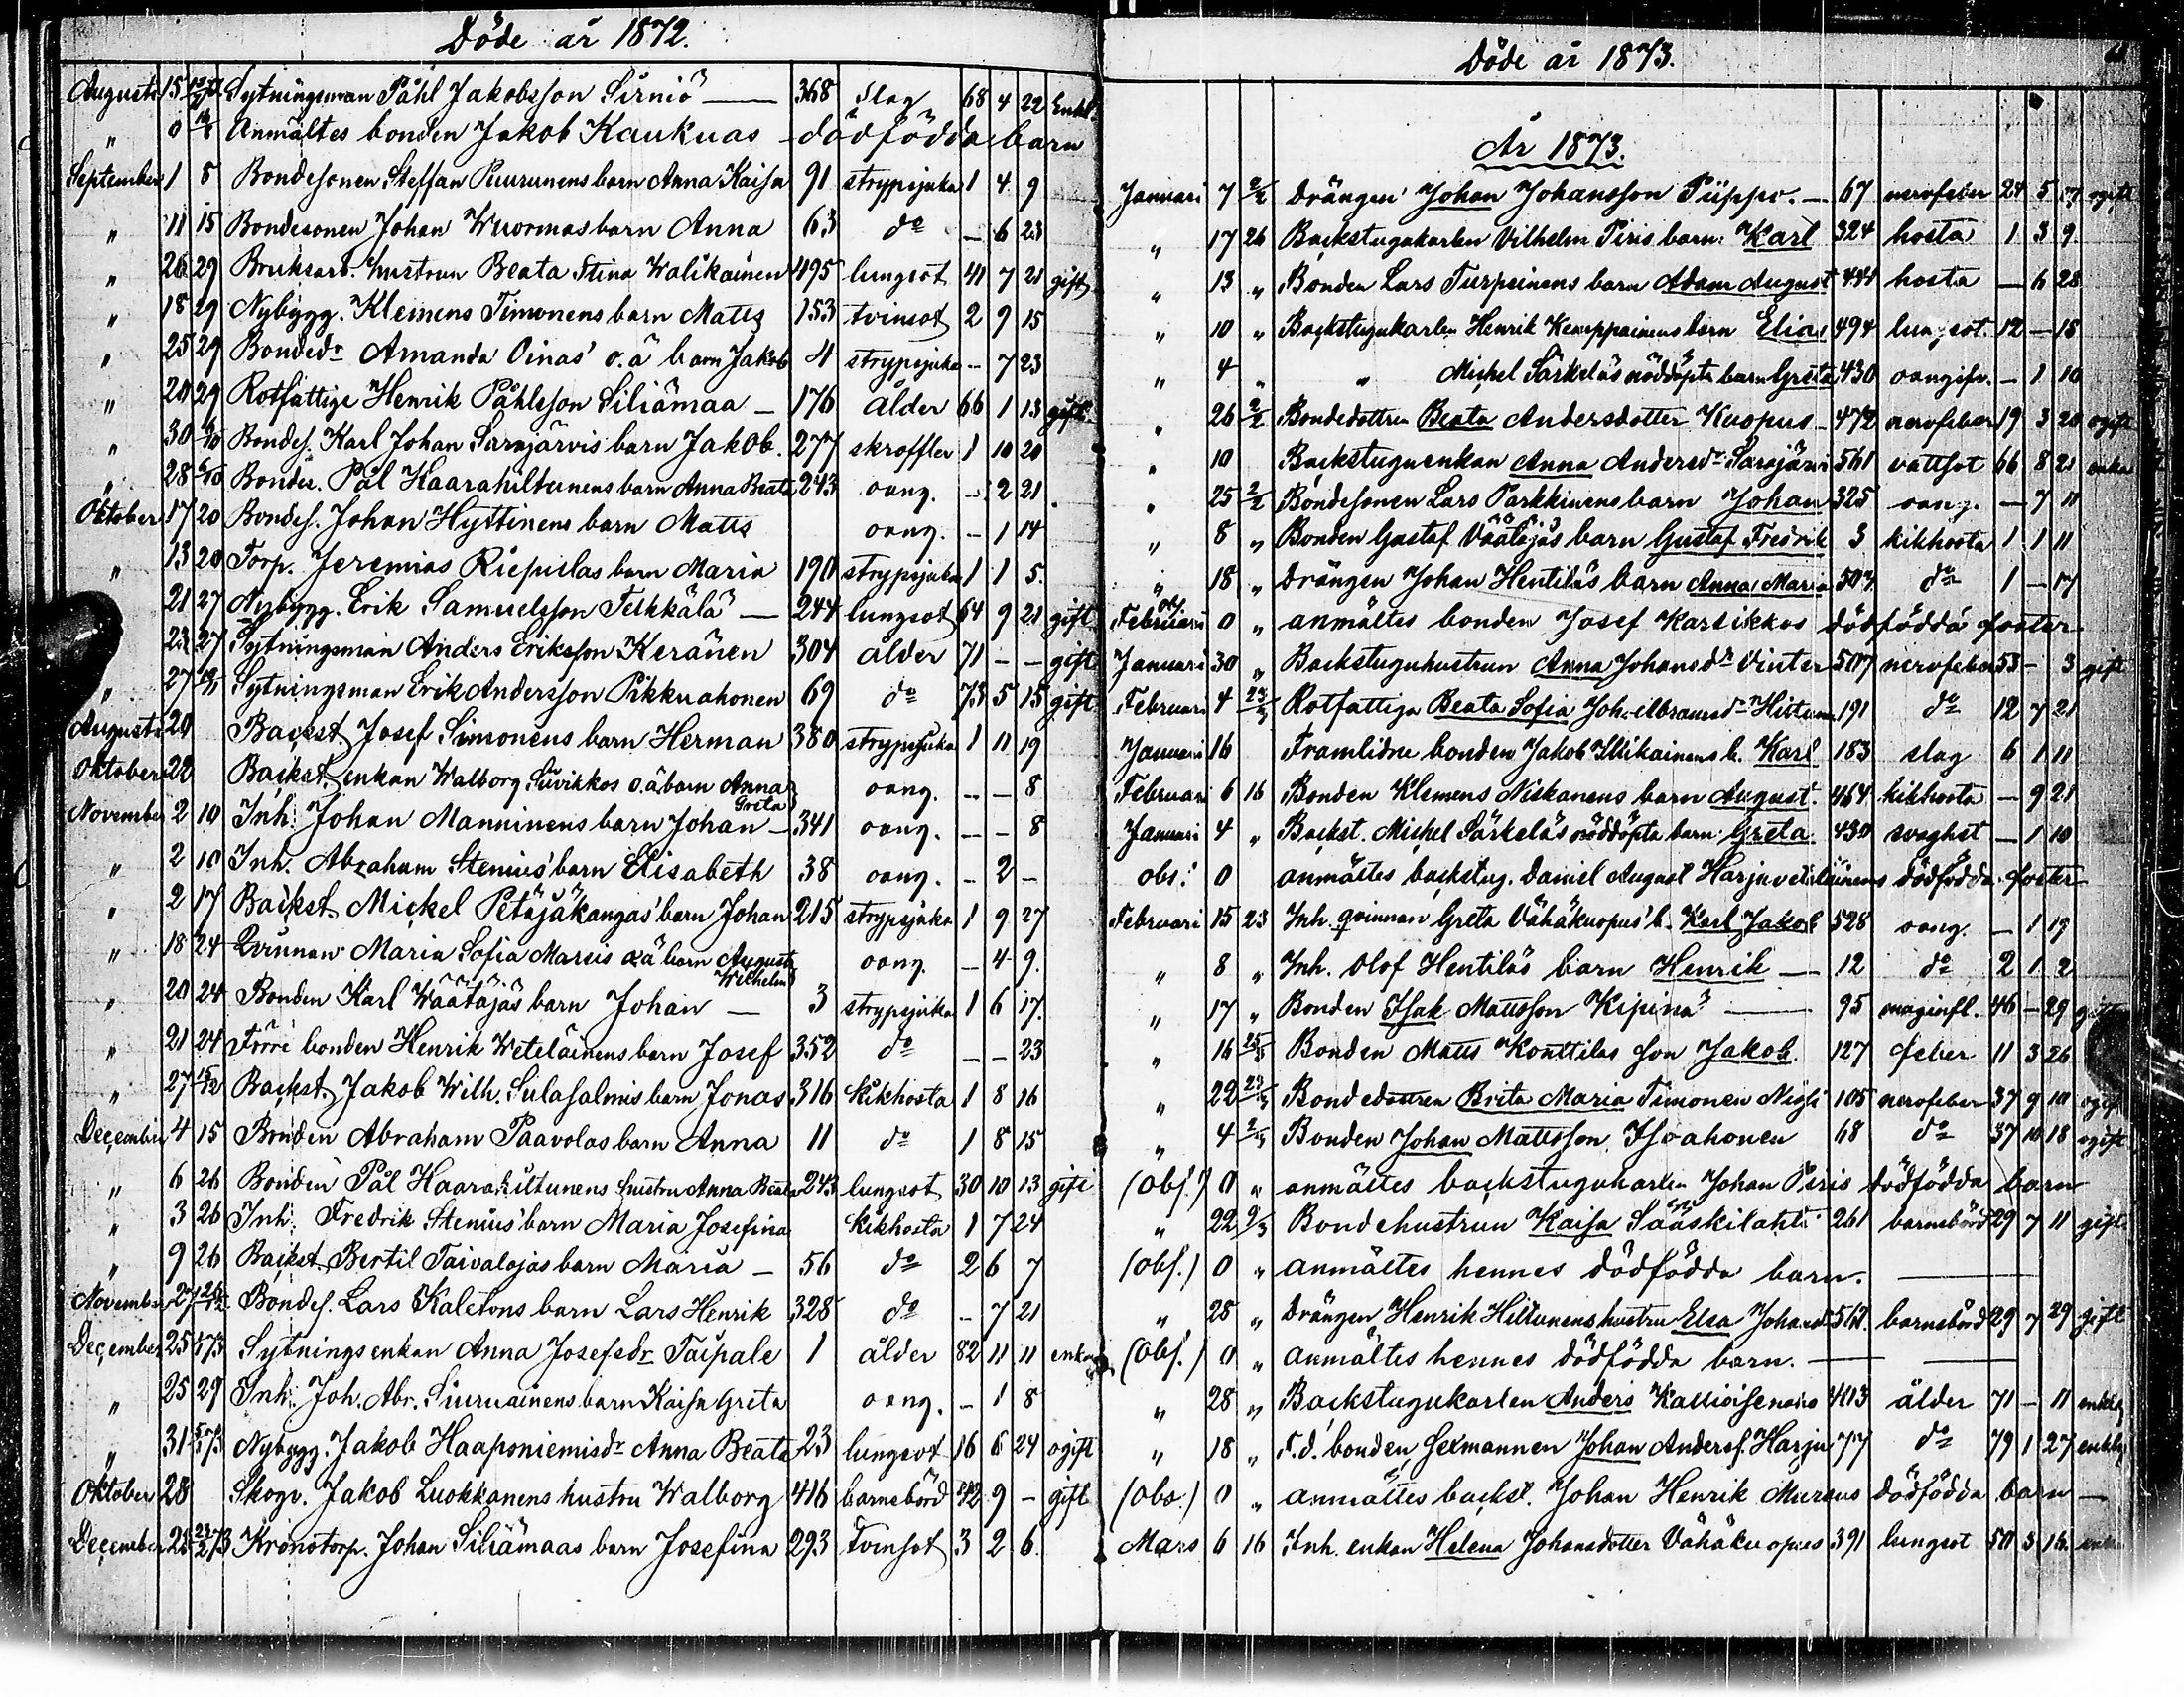 Döde år 1872.
Augusti 15 Sytningsman Påhl Jakobsson Sirniö — 368 slag 68 4 22 Enkl.
" 0 Anmältes bonden Jakob Kaukuas dödfödda barn
September 1 8 Bondesonen Steffan Puurunens barn Anna Kaisa 91 strypsjuka 1 4 9
" 11 15 Bondesonen Johan Wuormas barn Anna 63 do — 6 23
" 26 29 Bruksarb. hustrun Beata Stina Walikainen 495 lungsot 41 7 21 gift
" 18 29 Nybygg. Klemens Timonens barn Matts 153 tvinsot 2 9 15
" 25 29 Bonded:r Amanda Oinas' o.ä barn Jakob 4 strypsjuka - 7 23
" 20 29 Rotfattige Henrik Påhlsson Siliämaa — 176 ålder 66 1 13 gift
" 30 Bondes. Karl Johan Sarajärvis barn Jakob. 277 skroffler 1 10 20
" 28 Bonden. Pål Haarahiltunens barn Anna Beata 243 oang. - 2 21
Oktober 17 20 Bondes. Johan Hyttinens barn Matts oang. - 1 14
" 13 20 Torp. Jeremias Riepulas barn Maria 190 strypsjuka 1 1 5.
21 27 Nybygg. Erik Samuelsson Teikkälä — 244 lungsot 64 9 21 gift
23 27 Sytningsman Anders Eriksson Keränen 304 ålder 71 - - gift
" 27 Sytningsman Erik Andersson Pikkuahonen 69 do 73 5 15 gift
Augusti 20 Backst. Josef Simonens barn Herman 380 strypsjuka 1 11 19
Oktober 22 Backst. enkan Walborg Suvikkos o.ä barn Anna Greta oang. - - 8
November 2 10 Inh. Johan Manninens barn Johan — 341 oang. - - 8
" 2 10 Inh. Abraham Stenius' barn Elisabeth 38 oang. - 2 -
" 2 17 Backst. Mickel Petäjäkangas' barn Johan 215 strypsjuka 1 9 27
" 18 24 Qvinnan Maria Sofia Marsis o.ä barn August Wilhelm oang. - 4 9.
" 20 24 Bonden Karl Wäätäjäs barn Johan — 3 strypsjuka 1 6 17.
" 21 24 Förre bonden Henrik Weteläinens barn Josef 352 do - - 23
" 27 15/12 Backst. Jakob Wilh. Sulasalmis barn Jonas 316 Kikhosta 1 8 16
December 4 15 Bonden Abraham Paavolas barn Anna 11 do 1 8 15
" 6 26 Bonden Pål Haarahiltunens hustru Anna Beata 243 lungsot 30 10 13 gift
" 3 26 Inh. Fredrik Stenius' barn Maria Josefina Kikhosta 1 7 24
" 9 26 Backst. Bertil Taivalojas barn Maria — 56 do 2 6 7
November 27 26/12 Bondes. Lars Kaletons barn Lars Henrik 328 do - 7 21
December 25 Sytningsenkan Anna Josefsdr Taipale 1 ålder 82 11 11 enka
" 25 29 Inh. Joh. Abr. Siuruainens barn Kaisa Greta oang. - 1 8
" 31 Nybygg. Jakob Haaponiemisdr Anna Beata 23 lungsot 16 6 24 ogift
Oktober 28 Skogv. Jakob Luokkanens hustru Walborg 416 barnsbörd 42 9 - gift
December 28 Kronotorp. Johan Siliämaas barn Josefina 293 tvinsot 3 2 6.
Döde år 1873.
År 1873.
Januari 7 2/2 Drängen Johan Johansson Piippo. — 67 nervfeber 24 5 ogift
" 17 26 Backstugukarlen Vilhelm Piris barn Karl 324 hosta 1 3 9.
" 13 " Bonden Lars Turpeinens barn Adam August 444 hosta — 6 28
" 10 " Backstugukarlen Henrik Kemppainens barn Elias 494 lungsot. 12 - 15
" 4 " " Michel Särkeläs nöddöpta barn Greta 430 oangifv. - 1 10
" 26 2/2 Bondedottren Beata Andersdotter Kuopus - 472 nervfeber 19 3 20 ogift
" 10 Backstuguenkan Anna Andersdr Sarajärvi 561 vattsot 66 8 21 enka
" 25 2/2 Bondesonen Lars Parkkinens barn Johan 325 oang. — 7 11
" 8 " Bonden Gustaf Väätäjäs barn Gustaf Fredrik 3 kikhosta 1 1 11
" 18 " Drängen Johan Hentiläs barn Anna Maria 507 do 1 - 17
Februari obs 0 " anmältes bonden Josef Karsikkos dödfödda foster
Januari 30 " Backstuguhustrun Anna Johansdr Vinter 507 nervfeber 53 - 3 gift
Februari 4 Rotfattiga Beata Sofia Joh. Abramsdr Hiltunen 191 do 12 7 21
Januari 16 Framlidne bonden Jakob Illikainens b. Karl 183 slag 6 1 11
Februari 6 16 Bonden Klemens Niskanens barn August. 464 kikhosta — 9 21
Januari 4 " Backst. Michel Särkeläs nöddöpta barn Greta 430 svaghet — 1 10
obs! 0 anmältes backstug. Daniel August Harjuveteläinens dödfödda foster
Februari 15 23 Inh. qvinnan Greta Vähäkuopus' b. Karl Jakob 528 oang. — 1 19
" 8 " Inh. Olof Hentiläs barn Henrik — 12 do 2 1 2
" 17 " Bonden Isak Mattsson Kipinä — 95 maginfl. 46 - 29 gift
" 16 Bonden Matts Konttilas son Jakob. 127 feber 11 3 26
" 22 Bondedottren Brita Maria Timonen 105 nervfeber 37 9 10 ogift
" 4 Bonden Johan Mattsson Isoahonen 68 do 37 10 18 ogift
(Obs!) 0 " anmältes backstugukarlen Johan Piris dödfödda barn
" 22 9/3 Bondehustrun Kaisa Sääskilahti 261 barnsbörd 29 7 11 gift
(Obs.) 0 " anmältes hennes dödfödda barn. —
" 28 " Drängen Henrik Hiltunens hustru Elsa Johansd. barnsbörd 29 7 29 gift
(Obs.) 0 " anmältes hennes dödfödda barn. —
" 28 " Backstugukarlen Anders Kallioisenaho 403 ålder 71 - 11 enkling
" 18 " F.d. bonden, sexmannen Johan Anderss. Harju 77 do 79 1 27 enkling
(Obs.) 0 " anmältes backst. Johan Henrik Mursus dödfödda barn —
Mars 6 16 Inh. enkan Helena Johansdotter Vähäkuopus 391 lungsot 50 3 16. enka